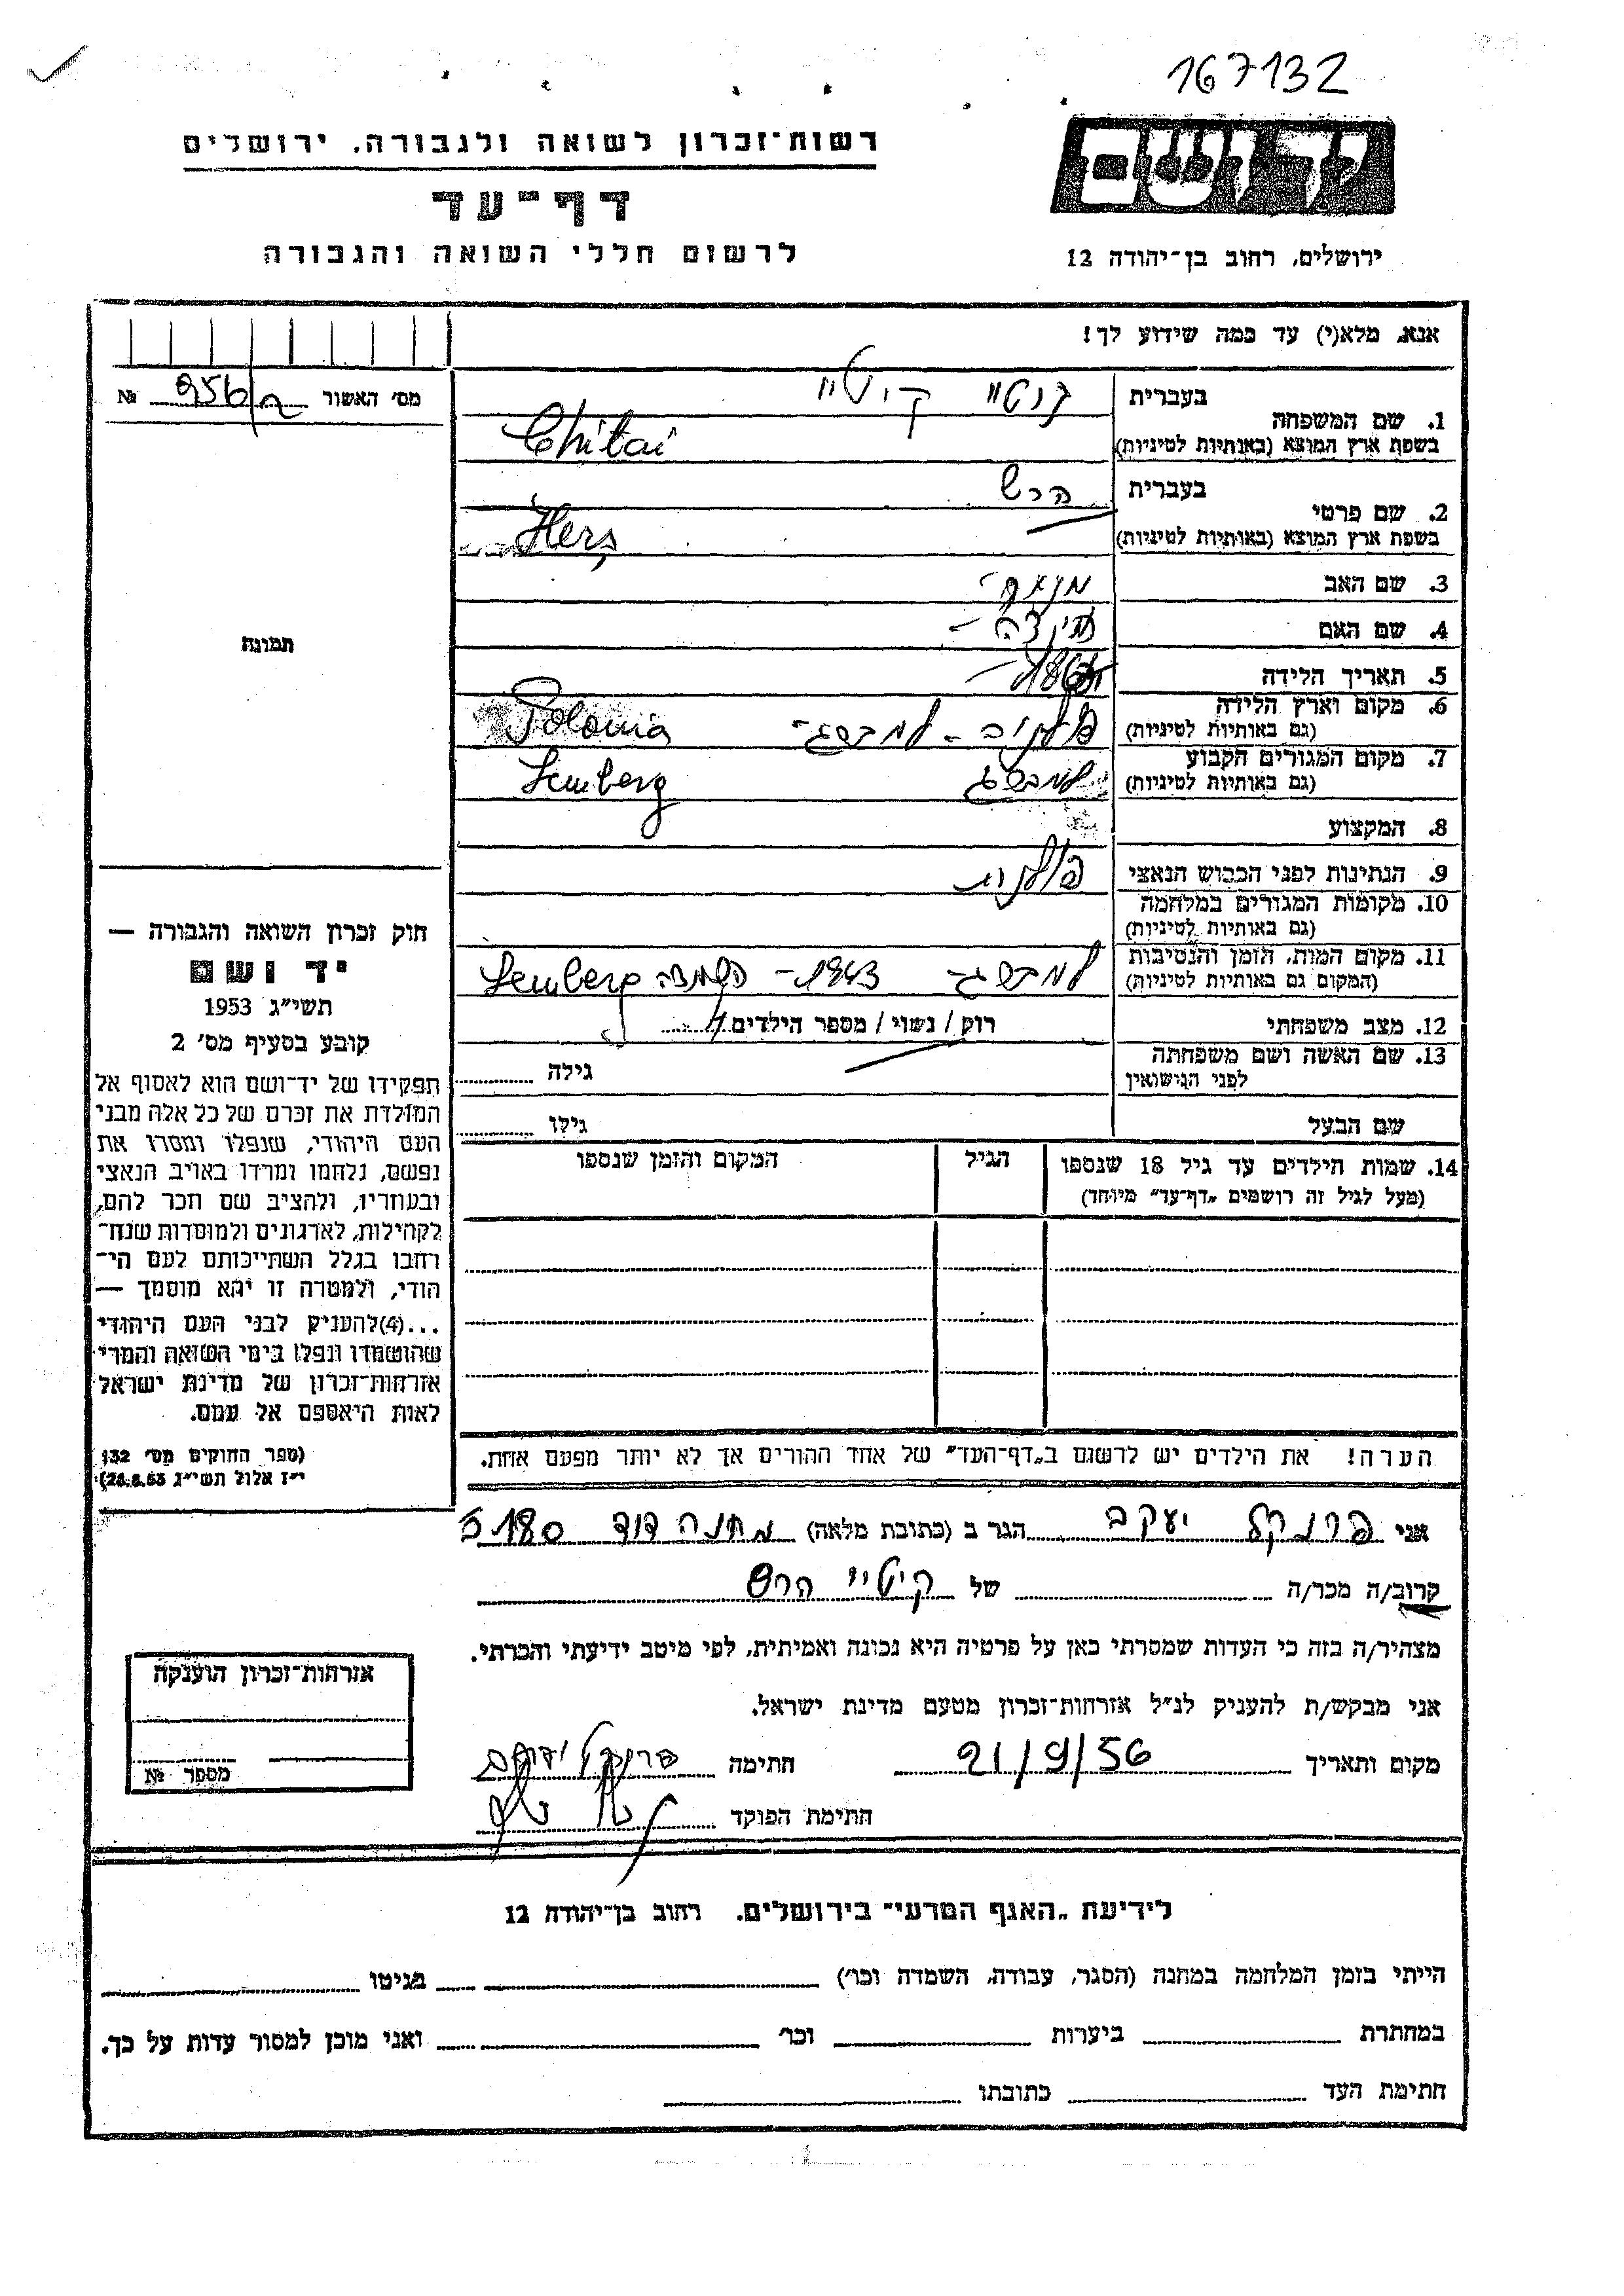 167132
רשות־זכרון לשואה ולגבורה, ירושלים
דף־עד
לרשום חללי השואה והגבורה
יד ושם
ירושלים, רחוב בן־יהודה 12
אנא, מלא(י) עד כמה שידוע לך!
מס׳ האשור 956/2 №
1. שם המשפחה
בעברית קיטיי
בשפת ארץ המוצא (באותיות לטיניות) Chitai
2. שם פרטי
בעברית הרש
בשפת ארץ המוצא (באותיות לטיניות) Hers
3. שם האב
4. שם האם
5. תאריך הלידה
6. מקום וארץ הלידה
(גם באותיות לטיניות) למברג - Polonia
7. מקום המגורים הקבוע
(גם באותיות לטיניות) למברג Lemberg
8. המקצוע
9. הנתינות לפני הכבוש הנאצי פולנית
10. מקומות המגורים במלחמה
(גם באותיות לטיניות)
11. מקום המות, הזמן והנסיבות
(המקום גם באותיות לטיניות) למברג - 1943 - השמדה Lemberg
12. מצב משפחתי רווק / נשוי / מספר הילדים
13. שם האשה ושם משפחתה
לפני הנישואין גילה
שם הבעל גילו
14. שמות הילדים עד גיל 18 שנספו הגיל המקום והזמן שנספו
(מעל לגיל זה רושמים „דף־עד״ מיוחד)
הערה! את הילדים יש לרשום ב„דף־העד״ של אחד ההורים אך לא יותר מפעם אחת.
תמונה
חוק זכרון השואה והגבורה —
יד ושם
תשי״ג 1953
קובע בסעיף מס׳ 2
תפקידו של יד־ושם הוא לאסוף אל
המולדת את זכרם של כל אלה מבני
העם היהודי, שנפלו ומסרו את
נפשם, נלחמו ומרדו באויב הנאצי
ובעוזריו, ולהציב שם וזכר להם,
לקהילות, לארגונים ולמוסדות שנח־
רבו בגלל השתייכותם לעם הי־
הודי, ולמטרה זו יהא מוסמך —
...(4)להעניק לבני העם היהודי
שהושמדו ונפלו בימי השואה והמרי
אזרחות־זכרון של מדינת ישראל
לאות היאספם אל עמם.
(ספר החוקים מס׳ 132
י״ז אלול תשי״ג 28.8.53)
אני פרנקל יעקב הגר ב (כתובת מלאה) מחנה דוד 5180
קרוב/ה מכר/ה של קיטיי הרש
מצהיר/ה בזה כי העדות שמסרתי כאן על פרטיה היא נכונה ואמיתית, לפי מיטב ידיעתי והכרתי.
אני מבקש/ת להעניק לנ״ל אזרחות־זכרון מטעם מדינת ישראל.
מקום ותאריך 21/9/56 חתימה פרנקל יעקב
חתימת הפוקד
אזרחות־זכרון הוענקה
מספר №
לידיעת „האגף המדעי״ בירושלים, רחוב בן־יהודה 12
הייתי בזמן המלחמה במחנה (הסגר, עבודה, השמדה וכו׳) בגיטו
במחתרת ביערות וכו׳ ואני מוכן למסור עדות על כך.
חתימת העד כתובתו